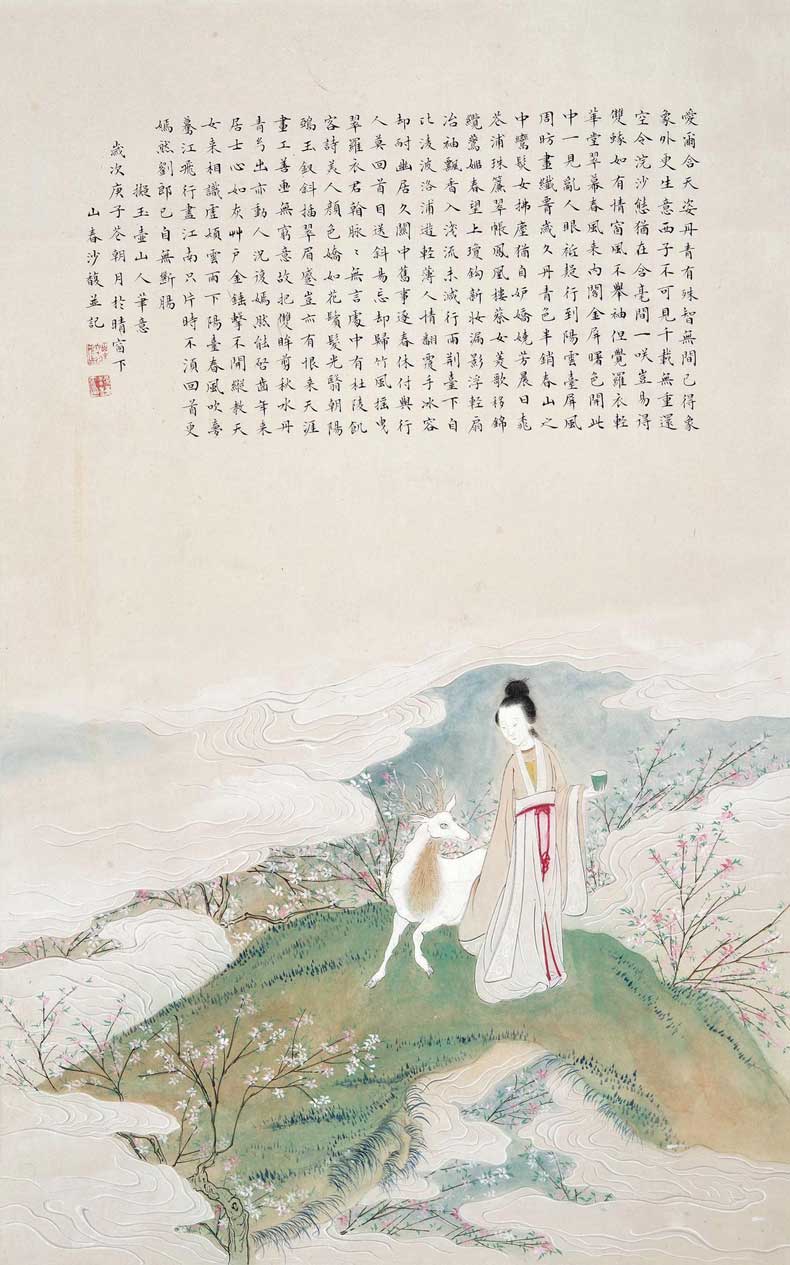 愛爾含天姿丹青有殊智無間已得象
象外更生意西子不可見千載無重還
空令浣沙態猶在含毫間一咲豈易得
雙蛾如有情窗風不舉袖但覺羅衣輕
華堂翠幕春風來內閣金屏曙色開此
中一見亂人眼祗疑行到陽雲臺屏風
周昉畫纖膏歲久丹青色半銷春山之
中鸞髮女拂塵猶自妒嬌嬈芳晨日
苍浦珠簾翠帳鳳凰樓蔡女菱歌移錦
纜鶯姬春望上瓊鉤新妝漏影浮輕扇
冶袖飄香入淺流未減行雨荆臺下自
比淩波洛浦遊輕薄人情翻覆手冰容
却耐幽居久關中舊事逐春休付與行
人莫回首目送斜易忘却歸竹風搖曳
翠羅衣君翰脉々無言處中有杜陵飢
客詩美人顏色嬌如花鬢髮光翳朝陽
鵶玉釵斜插翠眉蹙豈亦有恨來天涯
畫工善亜無窮意故把雙眸剪秋水丹
青当出亦動人况復嫣然能啓齒年来
居士心如灰艸戶金鎚擊不開縱教天
女来相識虛煩雲雨下陽臺春風吹夢
驀江飛行盡江南只片時不須回首更
嫣然劉郎已自無斷腸
擬玉壺山人筆意
歲次庚子苍朝月於晴窗下
山春沙馥並記